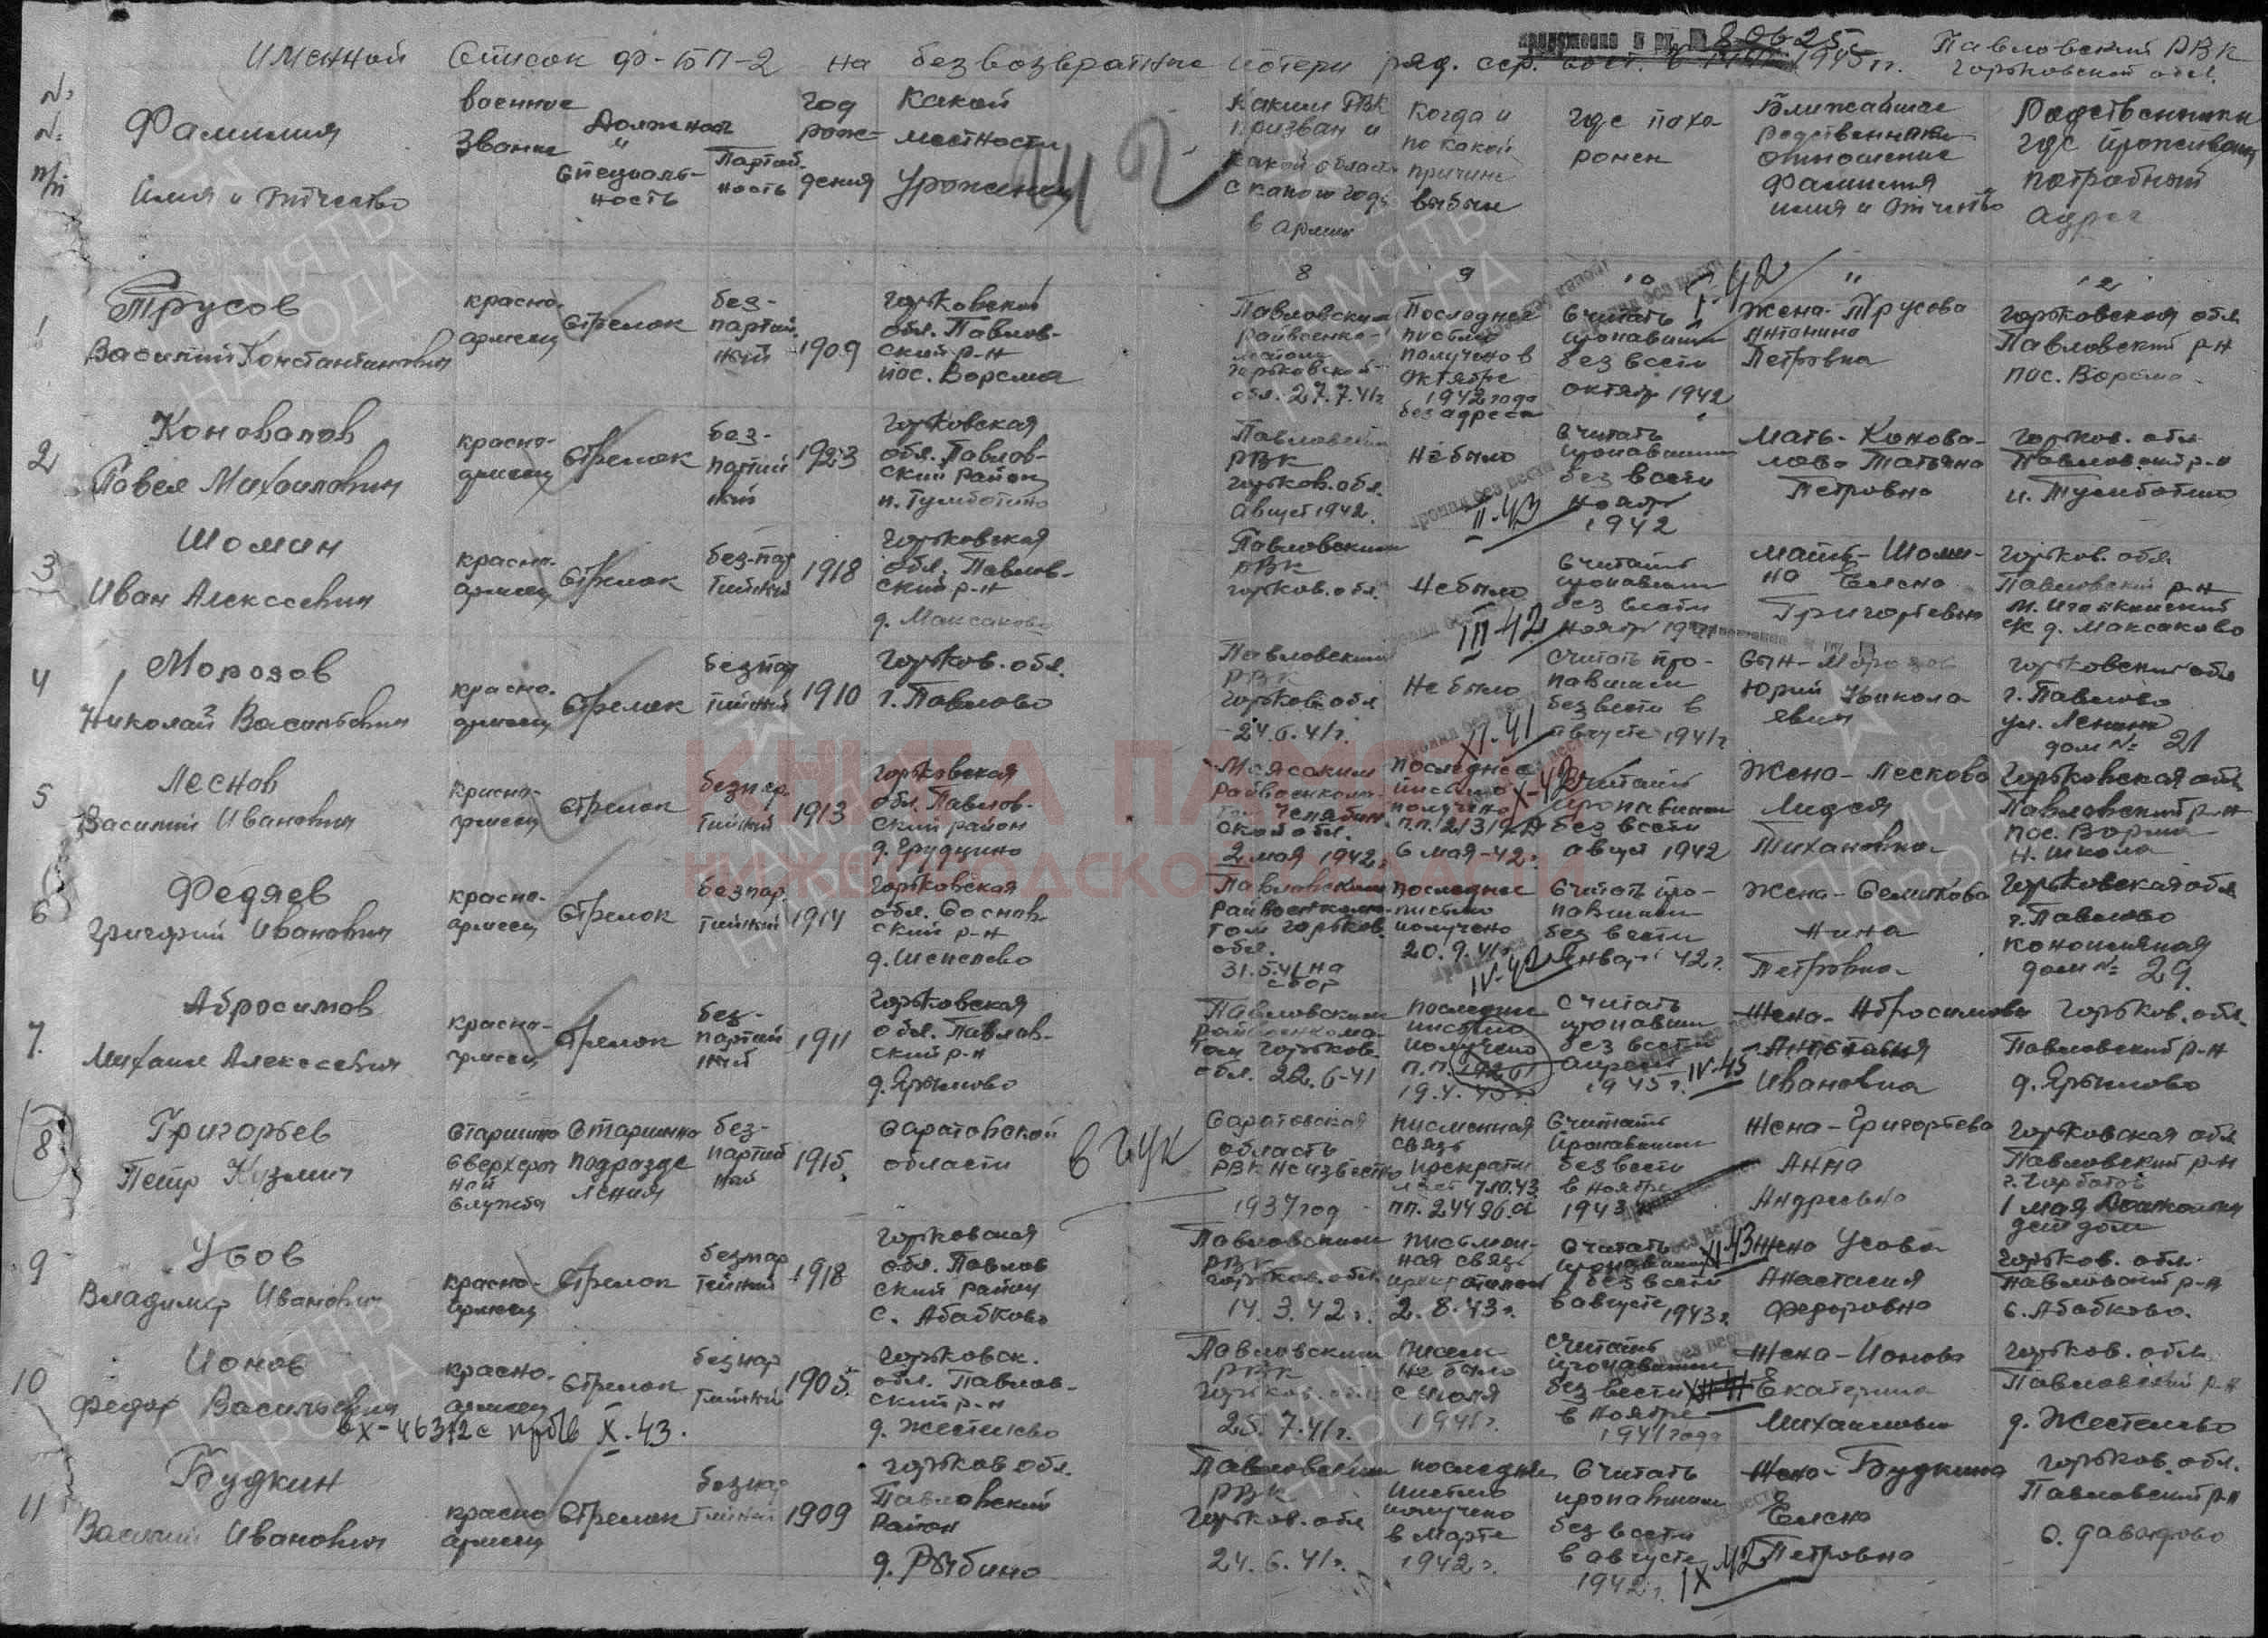 Именной список Ф-БП-2 на безвозвратные потери ряд. сер. сост. 1945 г.
80625
Павловский РВК
Горьковской обл.
№ № п/п
Фамилия Имя и Отчество
Военное звание
Должность и специальность
Партийность
Год рождения
Какой местности уроженец
42
Каким РВК призван и какой области с какого года в армии
Когда и по какой причине выбыл
Где похоронен
Ближайшие родственники отношение фамилия имя и отчество
Родственники где проживают подробный адрес
8 9 10 11 12
1
Трусов
Василий Константинович
красноармеец
стрелок
без-
партий
ный
1909
Горьковской
обл. Павлов-
ский р-н
пос. Ворсма
Павловским
райвоенко-
матом
Горьковской
обл. 27.7.41г
Последнее
письмо
получено в
октябре
1942 года
без адреса
Считать
пропавшим
без вести
октябр 1942
Жена - Трусова
Антонина
Петровна
Горьковская обл
Павловский р-н
пос. Ворсма
2
Коновалов
Павел Михаилович
красно-
армеец
стрелок
без-
партий
ный
1923
Горьковская
обл. Павлов-
ский район
п. Тумботино
Павловский
РВК
Горьков. обл.
Август 1942.
Не было
Считать
пропавшим
без вести
ноябр
1942
II-43
Мать - Конова-
лова Татьяна
Петровна
Горьков. обл
Павловский р-н
п. Тумботино
3
Шомин
Иван Алексеевич
красно-
армеец
стрелок
без-пар
тийный
1918
Горьковская
обл. Павлов-
ский р-н
д. Максаково
Павловским
РВК
Горьков. обл.
Не было
Считать
пропавшим
без вести
ноябр 1941
III-42
Мать - Шоми-
на Елена
Григорьевна
Горьков. обл.
Павловский р-н
с/с д. Максаково
4
Морозов
Николай Васильевич
красно-
армеец
стрелок
безпар
тийный
1910
Горьков. обл.
г. Павлово
Павловским
РВК
Горьков. обл
24.6.41г.
Не было
Считать про-
павшим
без вести в
августе 1941г
XI-41
Сын - Морозов
Юрий Никола
евич
Горьковская обл
г. Павлово
ул. Ленина
дом № 21
5
Леснов
Василий Иванович
красно-
армеец
стрелок
безпар
тийный
1913
Горьковская
обл. Павлов-
ский район
д. Грудцино
райвоенкома-
том Челябин
ской обл.
2 мая 1942г
Последнее
письмо
получено
6 мая-42г.
X-42
Считать
пропавшим
без вести
август 1942
Жена - Лескова
Лидия
Тихановна
Горьковская обл
Павловский р-н
пос. Ворсма
Н. школа
6
Федяев
Григорий Иванович
красно-
армеец
стрелок
безпар
тийный
1914
Горьковская
обл. Соснов
ский р-н
д. Шепелево
Павловским
райвоенкома-
том Горьков.
обл.
31.5.41 на
сбор
последнее
письмо
получено
20.9.41г
Считать про-
павшим
без вести
январ 42г.
IV-42
Жена - Селикова
Нина
Петровна
Горьковская обл
г. Павлово
Конопляная
дом № 29
7.
Абросимов
Михаил Алексеевич
красно-
армеец
стрелок
без-
партий
ный
1911
Горьковская
обл. Павлов-
ский р-н
д. Ярымово
Павловским
райвоенкома-
том Горьков.
обл. 22.6-41
последнее
письмо
получено
19.4.45г.
Считать
пропавшим
без вести
апрель
1945г.
IV-45
Жена - Абросимова
Ивановна
Горьков. обл.
Павловский р-н
д. Ярымово
8
Григорьев
Петр Кузмич
Старшина
сверхсроч
ной
службы
Старшина
подразде
ления
без-
партий
ный
1915
Саратовской
области
в ГУК
Саратовская
область
РВК не известно
1937 год
писменная
связь
прекрати
лась 7.10.43
пп. 24496.а
Считать
пропавшим
без вести
в ноябре
1943
Жена - Григорьева
Анна
Андреевна
Горьковская обл
Павловский р-н
г. Горбатов
1 мая
детдом
9
Усов
Владимир Иванович
красно-
армеец
стрелок
безпар
тейный
1918
Горьковская
обл. Павлов
ский район
с. Абабково
Павловским
РВК
Горьков. обл.
14.3.42г.
письмен-
ная связь
2.8.43г.
Считать
пропавшим
без вести
в августе 1943г.
XI-43
Жена Усова
Анастасия
Федоровна
Горьков. обл.
Павловский р-н
с. Абабково.
10
Ионов
Федор Васильевич
вх-46312с приб X.43.
красно-
армеец
стрелок
безпар
тийный
1905
Горьковск.
обл. Павлов-
ский р-н
д. Жестелево
Павловским
РВК
Горьков. обл.
25.7.41г.
Писем
не было
с июля
1941г.
Считать
пропавшим
без вести
в ноябре
1941 года
Жена - Ионова
Екатерина
Михаиловна
Горьков. обл.
Павловский р-н
д. Жестелево
11
Будкин
Василий Иванович
красно
армеец
стрелок
безпар
тийный
1909
Горьков обл.
Павловский
район
д. Рыбино
Павловским
РВК
Горьков. обл
24.6.41г.
последнее
письмо
получено
в марте
1942г.
Считать
пропавшим
без вести
в августе
1942г.
IX-42
Жена - Будкина
Елена
Петровна
Горьков. обл.
Павловский р-н
с. Давыдово
КНИГА ПАМЯТИ
НИЖЕГОРОДСКОЙ ОБЛАСТИ
ПАМЯТЬ
НАРОДА